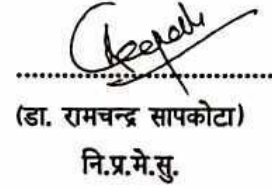 (डा. रामचन्द्र सापकोटा)
नि.प्र.मे.सु.